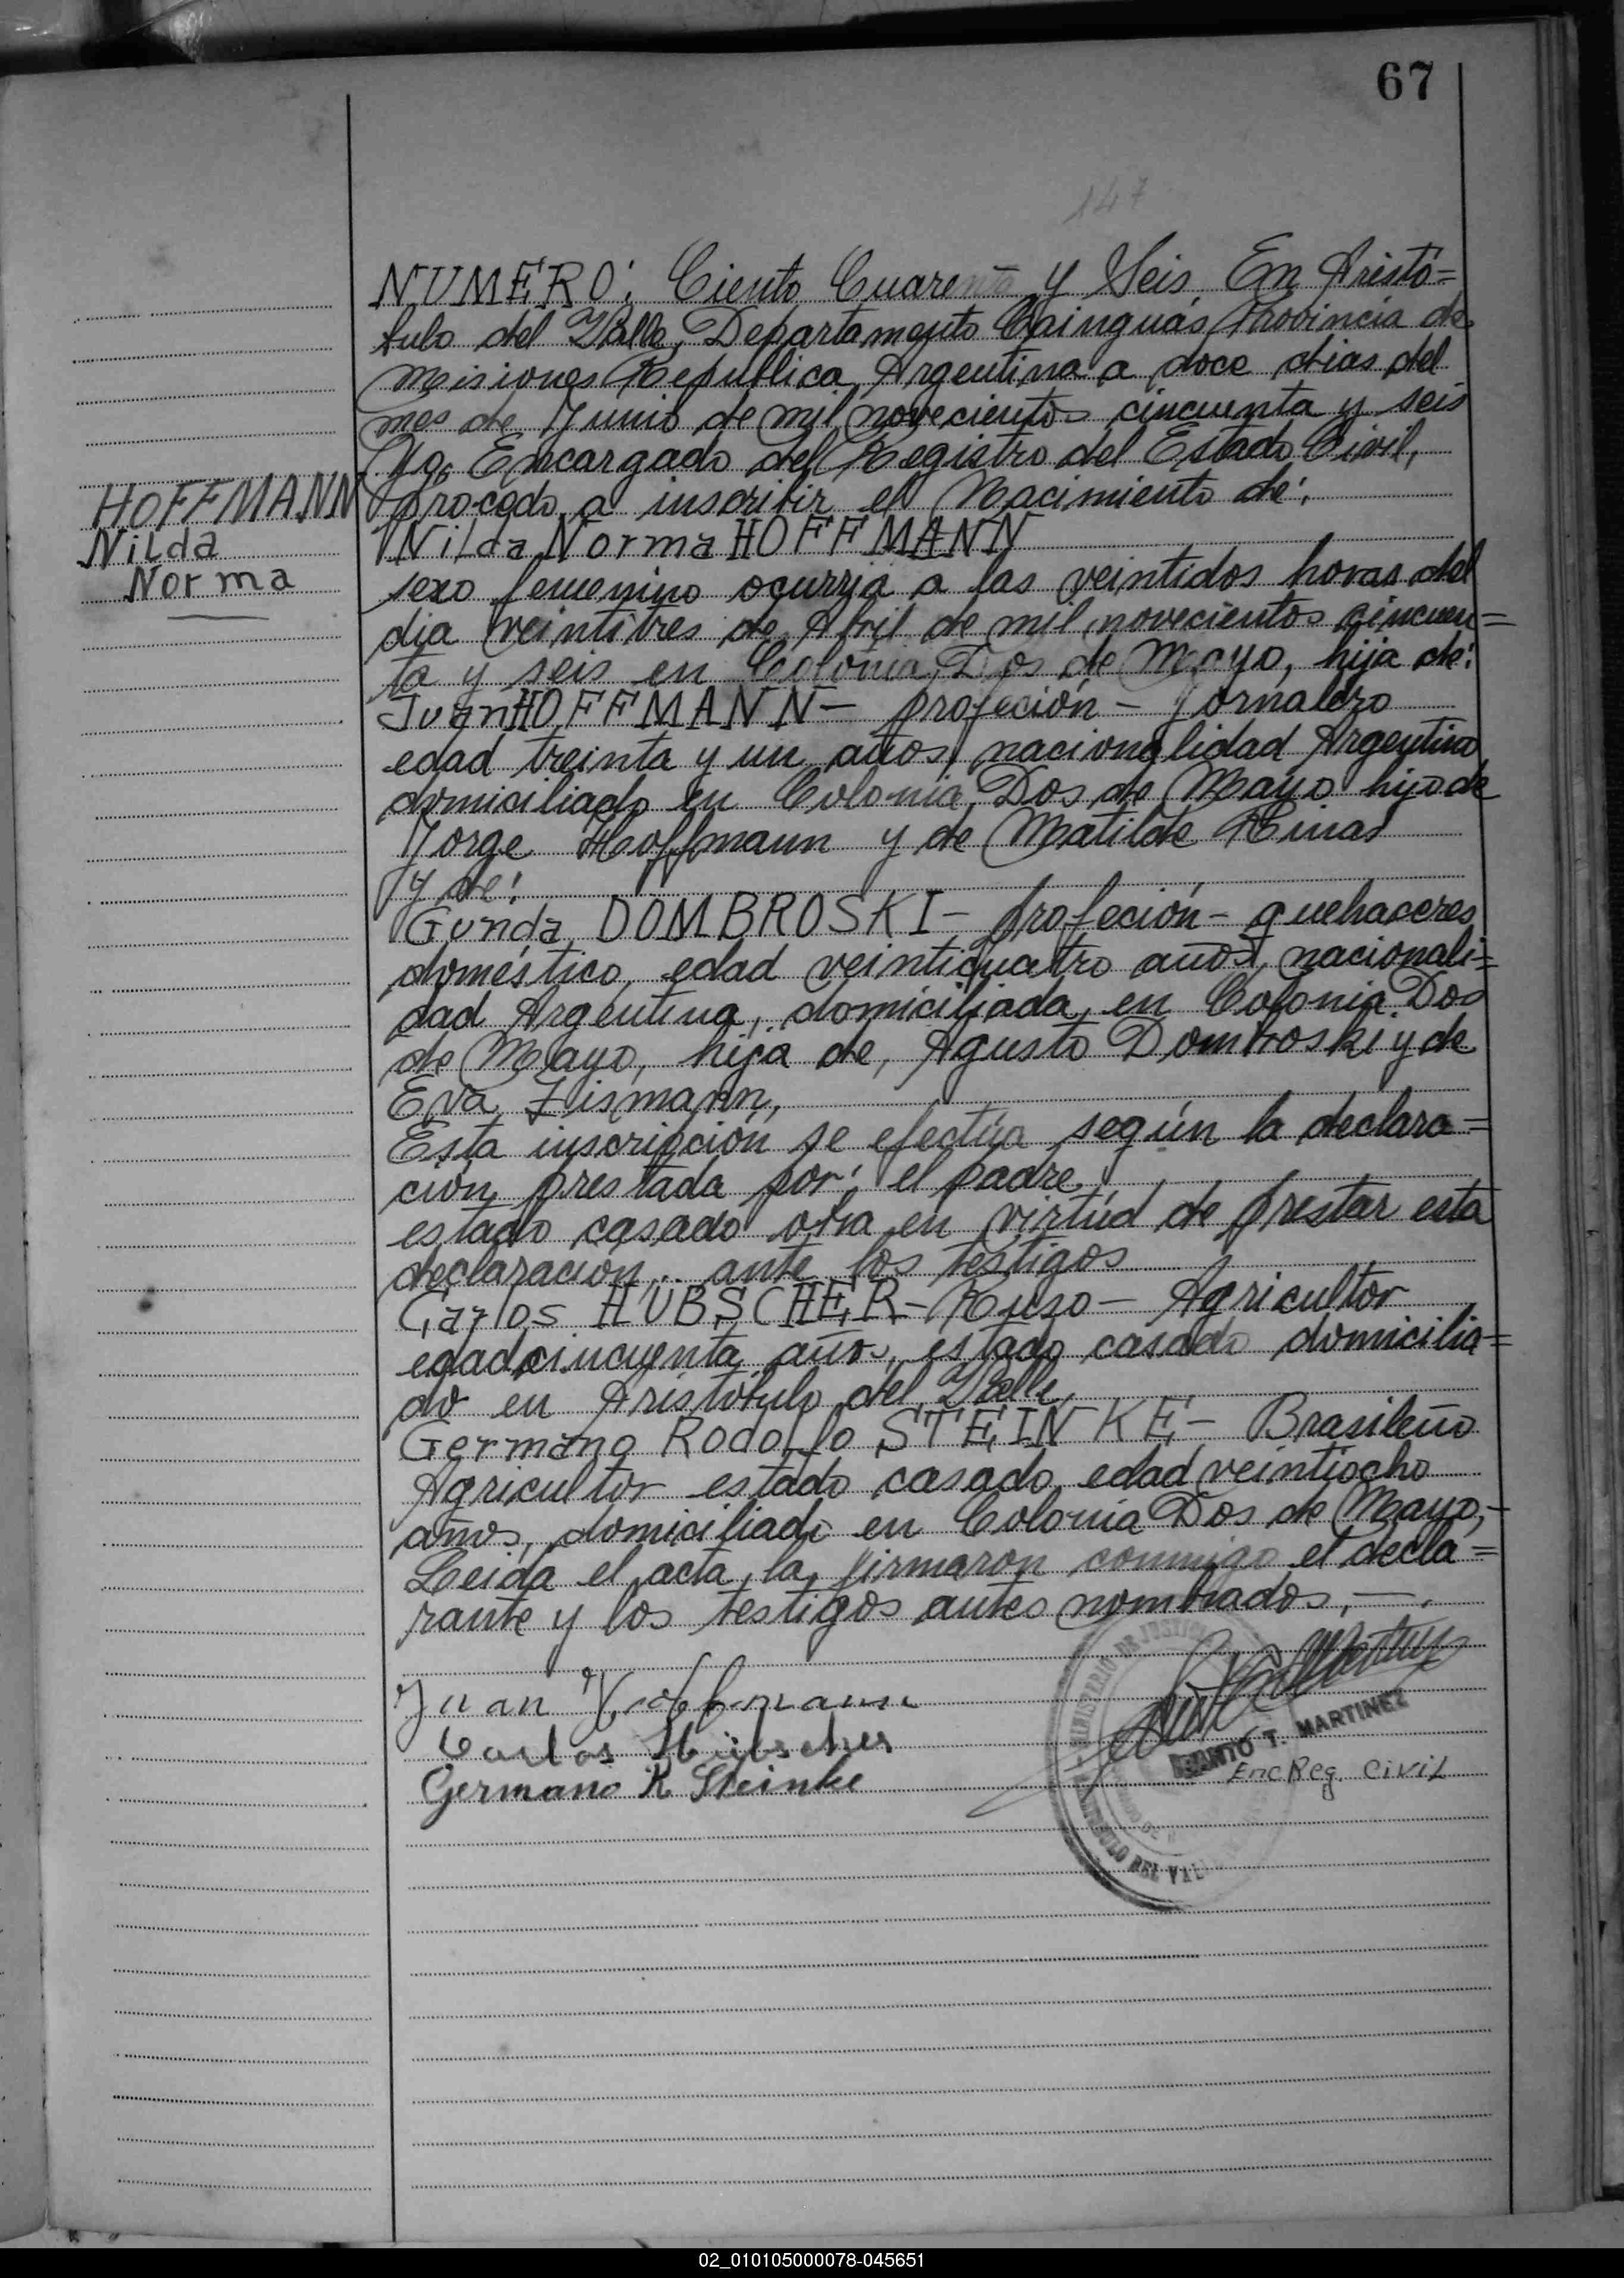 67
147
NUMERO: Ciento Cuarenta y Seis. En Aristó=
bulo del Valle, Departamento Cainguás Provincia de
Misiones Republica Argentina a doce dias del
mes de Junio de mil novecientos cincuenta y seis
Yo, Encargado del Registro del Estado Civil,
procedo a inscribir el Nacimiento de:
HOFFMANN
Nilda
Norma
Nilda Norma HOFFMANN
sexo femenino ocurrja a las veintidos horas del
dia veintitres de Abril de mil novecientos cincuen=
ta y seis en Colonia Dos de Mayo, hija de:
Juan HOFFMANN - profeción - Jornalero
edad treinta y un años, nacionalidad Argentino
domiciliado en Colonia Dos de Mayo hijo de
Jorge Hoffmann y de Matilde
y de:
Gunda DOMBROSKI - profeción - quehaceres
doméstico, edad veinticuatro años, nacionali=
dad Argentina, domiciliada en Colonia Dos
de Mayo, hija de, Agusto Dombroski y de
Eva Zismann,
Esta inscripción se efectúa según la declara=
ción prestada por: el padre
estado casado obra en virtúd de prestar esta
declaración.. ante los testigos
Carlos HUBSCHER - Ruso - Agricultor
edad cincuenta años, estado casado domicilia=
do en Aristobulo del Valle,
Germano Rodolfo STEINKE - Brasileño
Agricultor estado casado, edad veintiocho
años, domiciliado en Colonia Dos de Mayo,-
Leida el acta, la firmaron conmigo el decla=
rante y los testigos antes nombrados, —.
Juan Hoffmann
Carlos Hübscher
Germano R Steinke
MINISTERIO DE JUSTICIA
T. MARTINEZ
Enc Reg. Civil
DEL VALLE
02_010105000078-045651